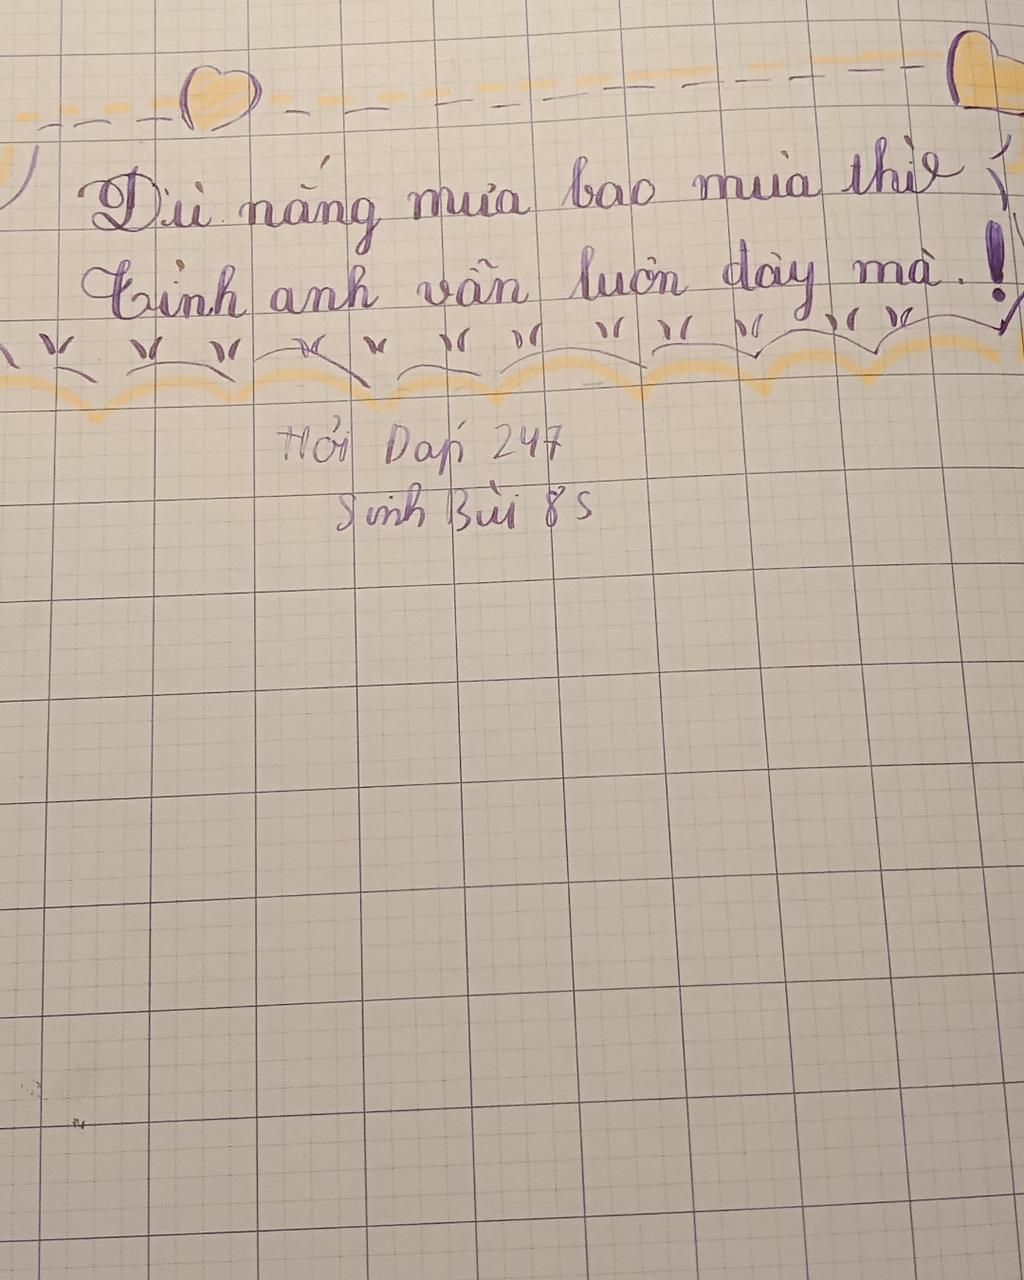 Dù nắng mưa bao mùa thiê
tình anh vẫn luôn đày mà.!
Hỏi Đap 247
Sinh Bùi 8S